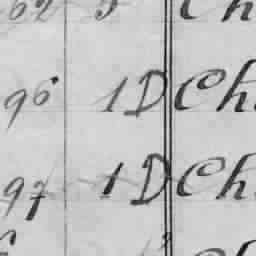 62 5 Ch
96 1 D Ch
97 1 D Ch